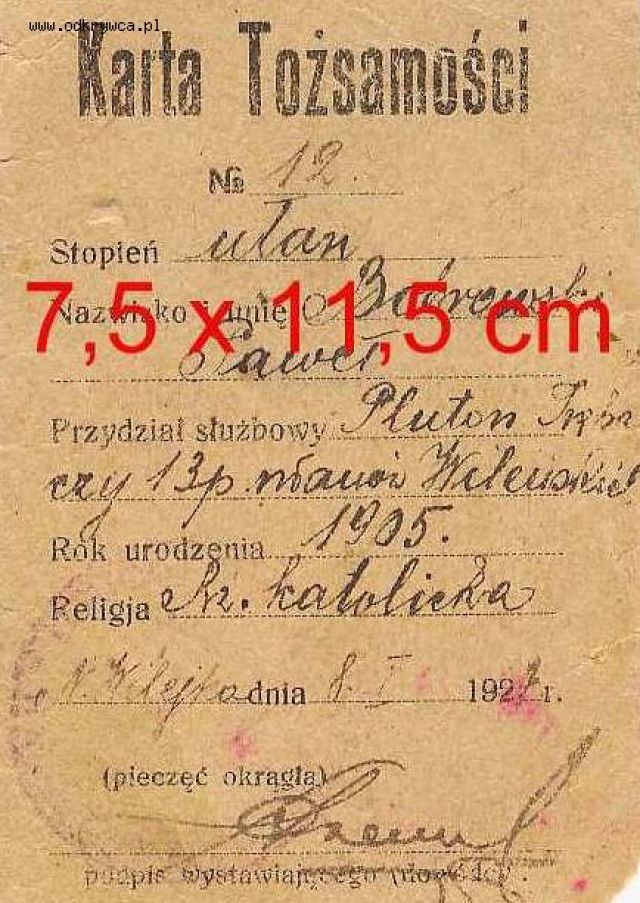 www.odkrywca.pl
Karta Tożsamości
№ 12.
Stopień ułan
Nazwisko i imię
7,5 x 11,5 cm
Paweł
Przydział służbowy Pluton
czy 13 p. ułanów
Rok urodzenia 1905.
Religja Rz. katolicka
N. Wilejka dnia 8. I 192 r.
(pieczęć okrągła)
podpis wystawiającego